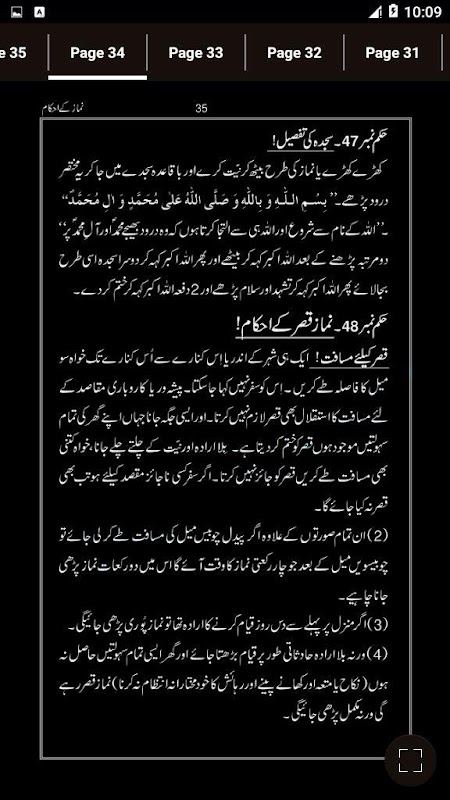 10:09
e 35
Page 34
Page 33
Page 32
Page 31
نماز کے احکام
35
حکم نمبر 47۔ سجدہ کی تفصیل!
کھڑے کھڑے یا نماز کی طرح بیٹھ کر نیت کرے اور باقاعدہ سجدے میں جا کر یہ مختصر
درود پڑھے۔ ’’بِسْمِ اللّٰہِ وَ بِاللّٰہِ وَ صَلَّی اللّٰهُ عَلٰی مُحَمَّدٍ وَ اٰلِ مُحَمَّدٌ‘‘
۔’’اللہ کے نام سے شروع اور اللہ ہی سے التجا کرتا ہوں کہ وہ درود بھیجے محمدؐ اور آلِ محمدؐ پر‘‘
دو مرتبہ پڑھنے کے بعد اللہ اکبر کہہ کر بیٹھے اور پھر اللہ اکبر کہہ کر دوسرا سجدہ اسی طرح
بجا لائے پھر اللہ اکبر کہہ کر تشہد اور سلام پڑھے اور 2 دفعہ اللہ اکبر کہہ کر ختم کر دے۔
حکم نمبر 48۔ نماز قصر کے احکام!
قصر کیلئے مسافت! ایک ہی شہر کے اندر یا اِس کنارے سے اُس کنارے تک خواہ سو
میل کا فاصلہ طے کریں۔ اِس کو سفر نہیں کہا جا سکتا۔ پیشہ ور یا کاروباری مقاصد کے
لئے مسافت کا استقلال بھی قصر لازم نہیں کرتا۔ اور ایسی جگہ جانا جہاں اپنے گھر کی تمام
سہولتیں موجود ہوں قصر کو ختم کر دیتا ہے۔ بلا ارادہ اور نیّت کے چلتے چلے جانا، خواہ کتنی
بھی مسافت طے کریں قصر کو جائز نہیں کرتا۔ اگر سفر کسی نا جائز مقصد کیلئے ہو تب بھی
قصر نہ کیا جائے گا۔
(2) ان تمام صورتوں کے علاوہ اگر پیدل چوبیس میل کی مسافت طے کر لی جائے تو
چوبیسویں میل کے بعد جو چار رکعتی نماز کا وقت آئے گا اس میں دو رکعات نماز پڑھی
جانا چاہیے۔
(3) اگر منزل پر پہلے سے دس روز قیام کرنے کا ارادہ تھا تو نماز پُوری پڑھی جائیگی۔
(4) ورنہ بلا ارادہ حادثاتی طور پر قیام بڑھتا جائے اور گھر ایسی تمام سہولتیں حاصل نہ
ہوں (نکاح یا متعہ اور کھانے پینے اور رہائش کا خود مختارانہ انتظام نہ کرنا) نماز قصر رہے
گی ورنہ مکمل پڑھی جائیگی۔